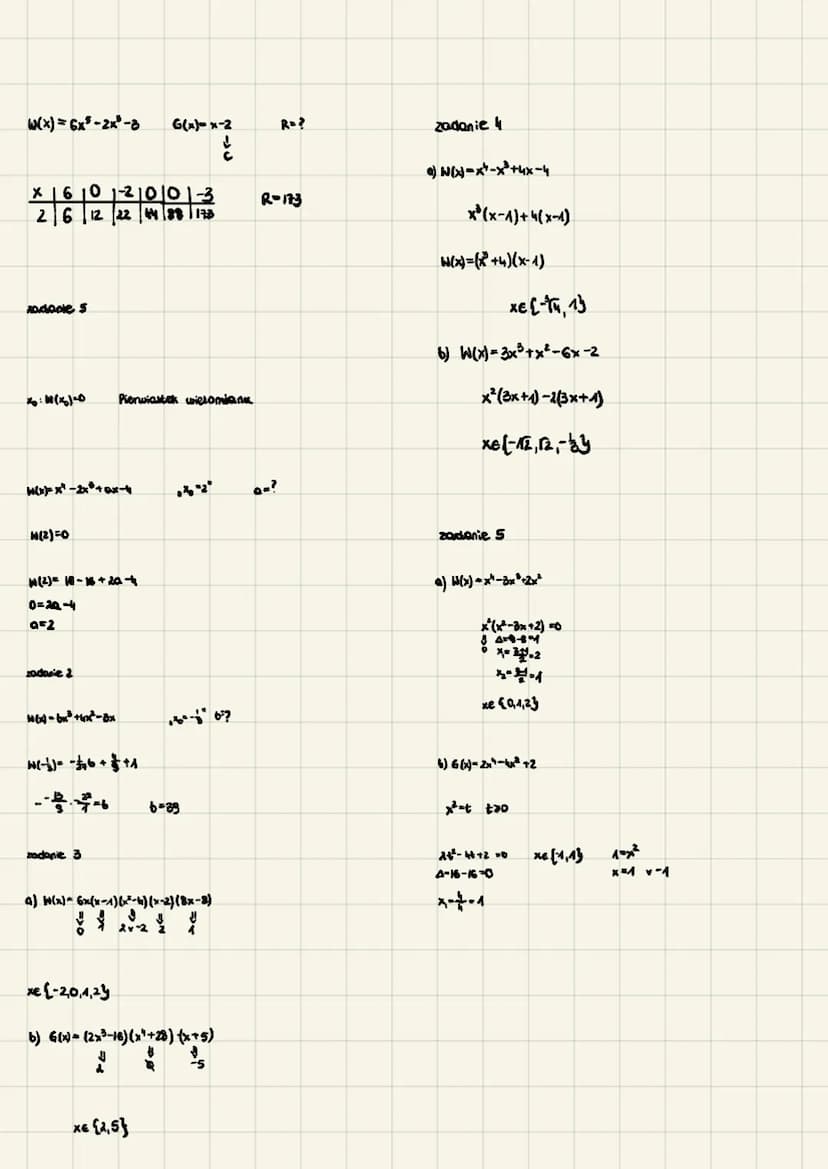 W(x) = 6x⁵-2x³-3 G(x)= x-2 R=?
↓
c
x | 6 | 0 | -2 | 0 | 0 | -3
2 | 6 | 12 | 22 | 44 | 88 | 173 R=173
zadanie 5
x₀: W(x₀)=0 Pierwiastek wielomianu
W(x)= x⁴-2x³+ax-4 „x₀=2" a=?
W(2)=0
W(2)= 16-16+2a-4
0=2a-4
a=2
zadanie 2
W(x)= bx³+4x²-3x „x₀=-1/3" b=?
W(-1/3)= -1/27b + 4/9 +1
--13/9·-27/1=b b=39
zadanie 3
a) W(x)= 6x(x-1)(x²-4)(x-2)(8x-8)
⇓ ⇓ ⇓ ⇓ ⇓
0 1 2 v -2 2 1
x∈{-2,0,1,2}
b) G(x)= (2x³-16)(x⁴+28)(x+5)
⇓ ⇓ ⇓
2 ∅ -5
x∈{2,5}
zadanie 4
a) W(x)=x⁴-x³+4x-4
x³(x-1)+4(x-1)
W(x)=(x³+4)(x-1)
x∈{-³√4, 1}
b) W(x)=3x³+x²-6x-2
x²(3x+1)-2(3x+1)
x∈{-√2,√2,-1/3}
zadanie 5
a) W(x)=x⁴-3x³+2x²
x²(x²-3x+2)=0
⇓ Δ=9-8=1
0 x₁= 3+1/2=2
x₂= 3-1/2=1
x∈{0,1,2}
b) G(x)=2x⁴-4x²+2
x²=t t≥0
2t²-4t+2=0 x∈{-1,1} 1=x²
Δ=16-16=0 x=1 v -1
x₁=4/4=1